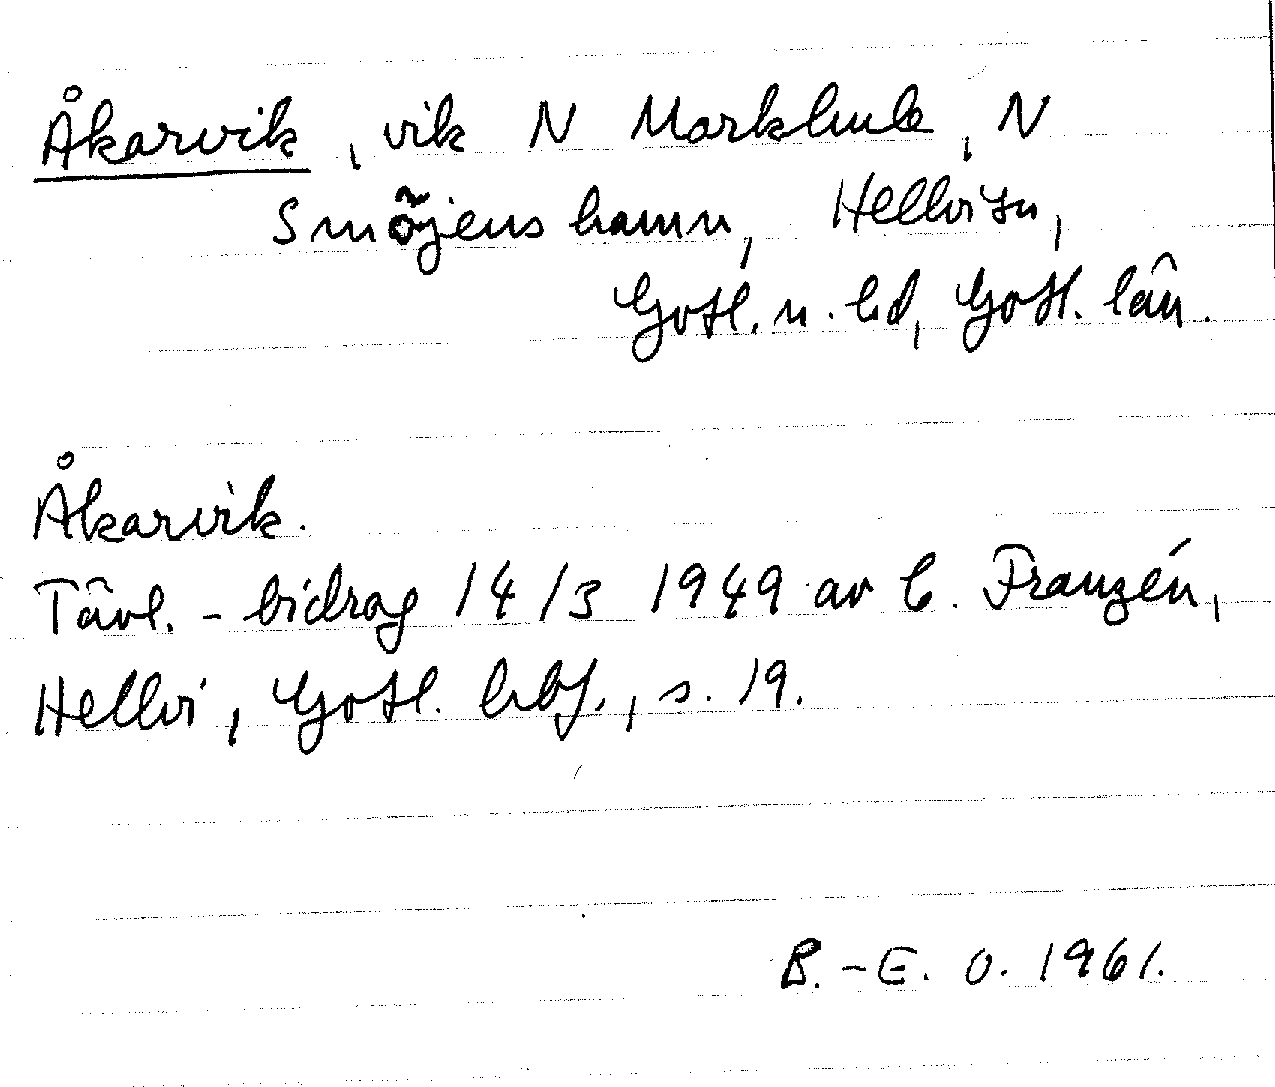 Åkarvik, vik N Markhule, N
Smöjens hamn, Hellvi sn,
Gotl. n. hd, Gotl. län.
Åkarvik.
Tävl.-bidrag 14/3 1949 av C. Franzén,
Hellvi, Gotl. hbf., s. 19.
B.-E. O. 1961.